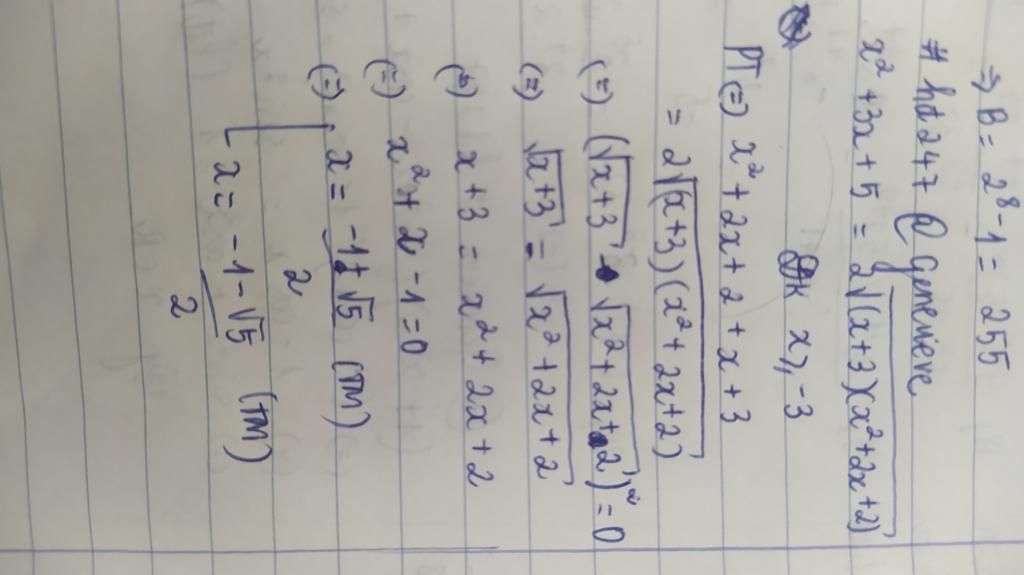 => B = 2⁸ - 1 = 255
# hd247 @ genevieve
x² + 3x + 5 = 2√(x+3)(x²+2x+2)
Đk x ≥ -3
PT (=) x² + 2x + 2 + x + 3
= 2√(x+3)(x²+2x+2)
(=) (√x+3 - √x²+2x+2)² = 0
(=) √x+3 = √x²+2x+2
(=) x + 3 = x² + 2x + 2
(=) x² + x - 1 = 0
(=) [ x = (-1+√5)/2 (TM)
x = (-1-√5)/2 (TM)